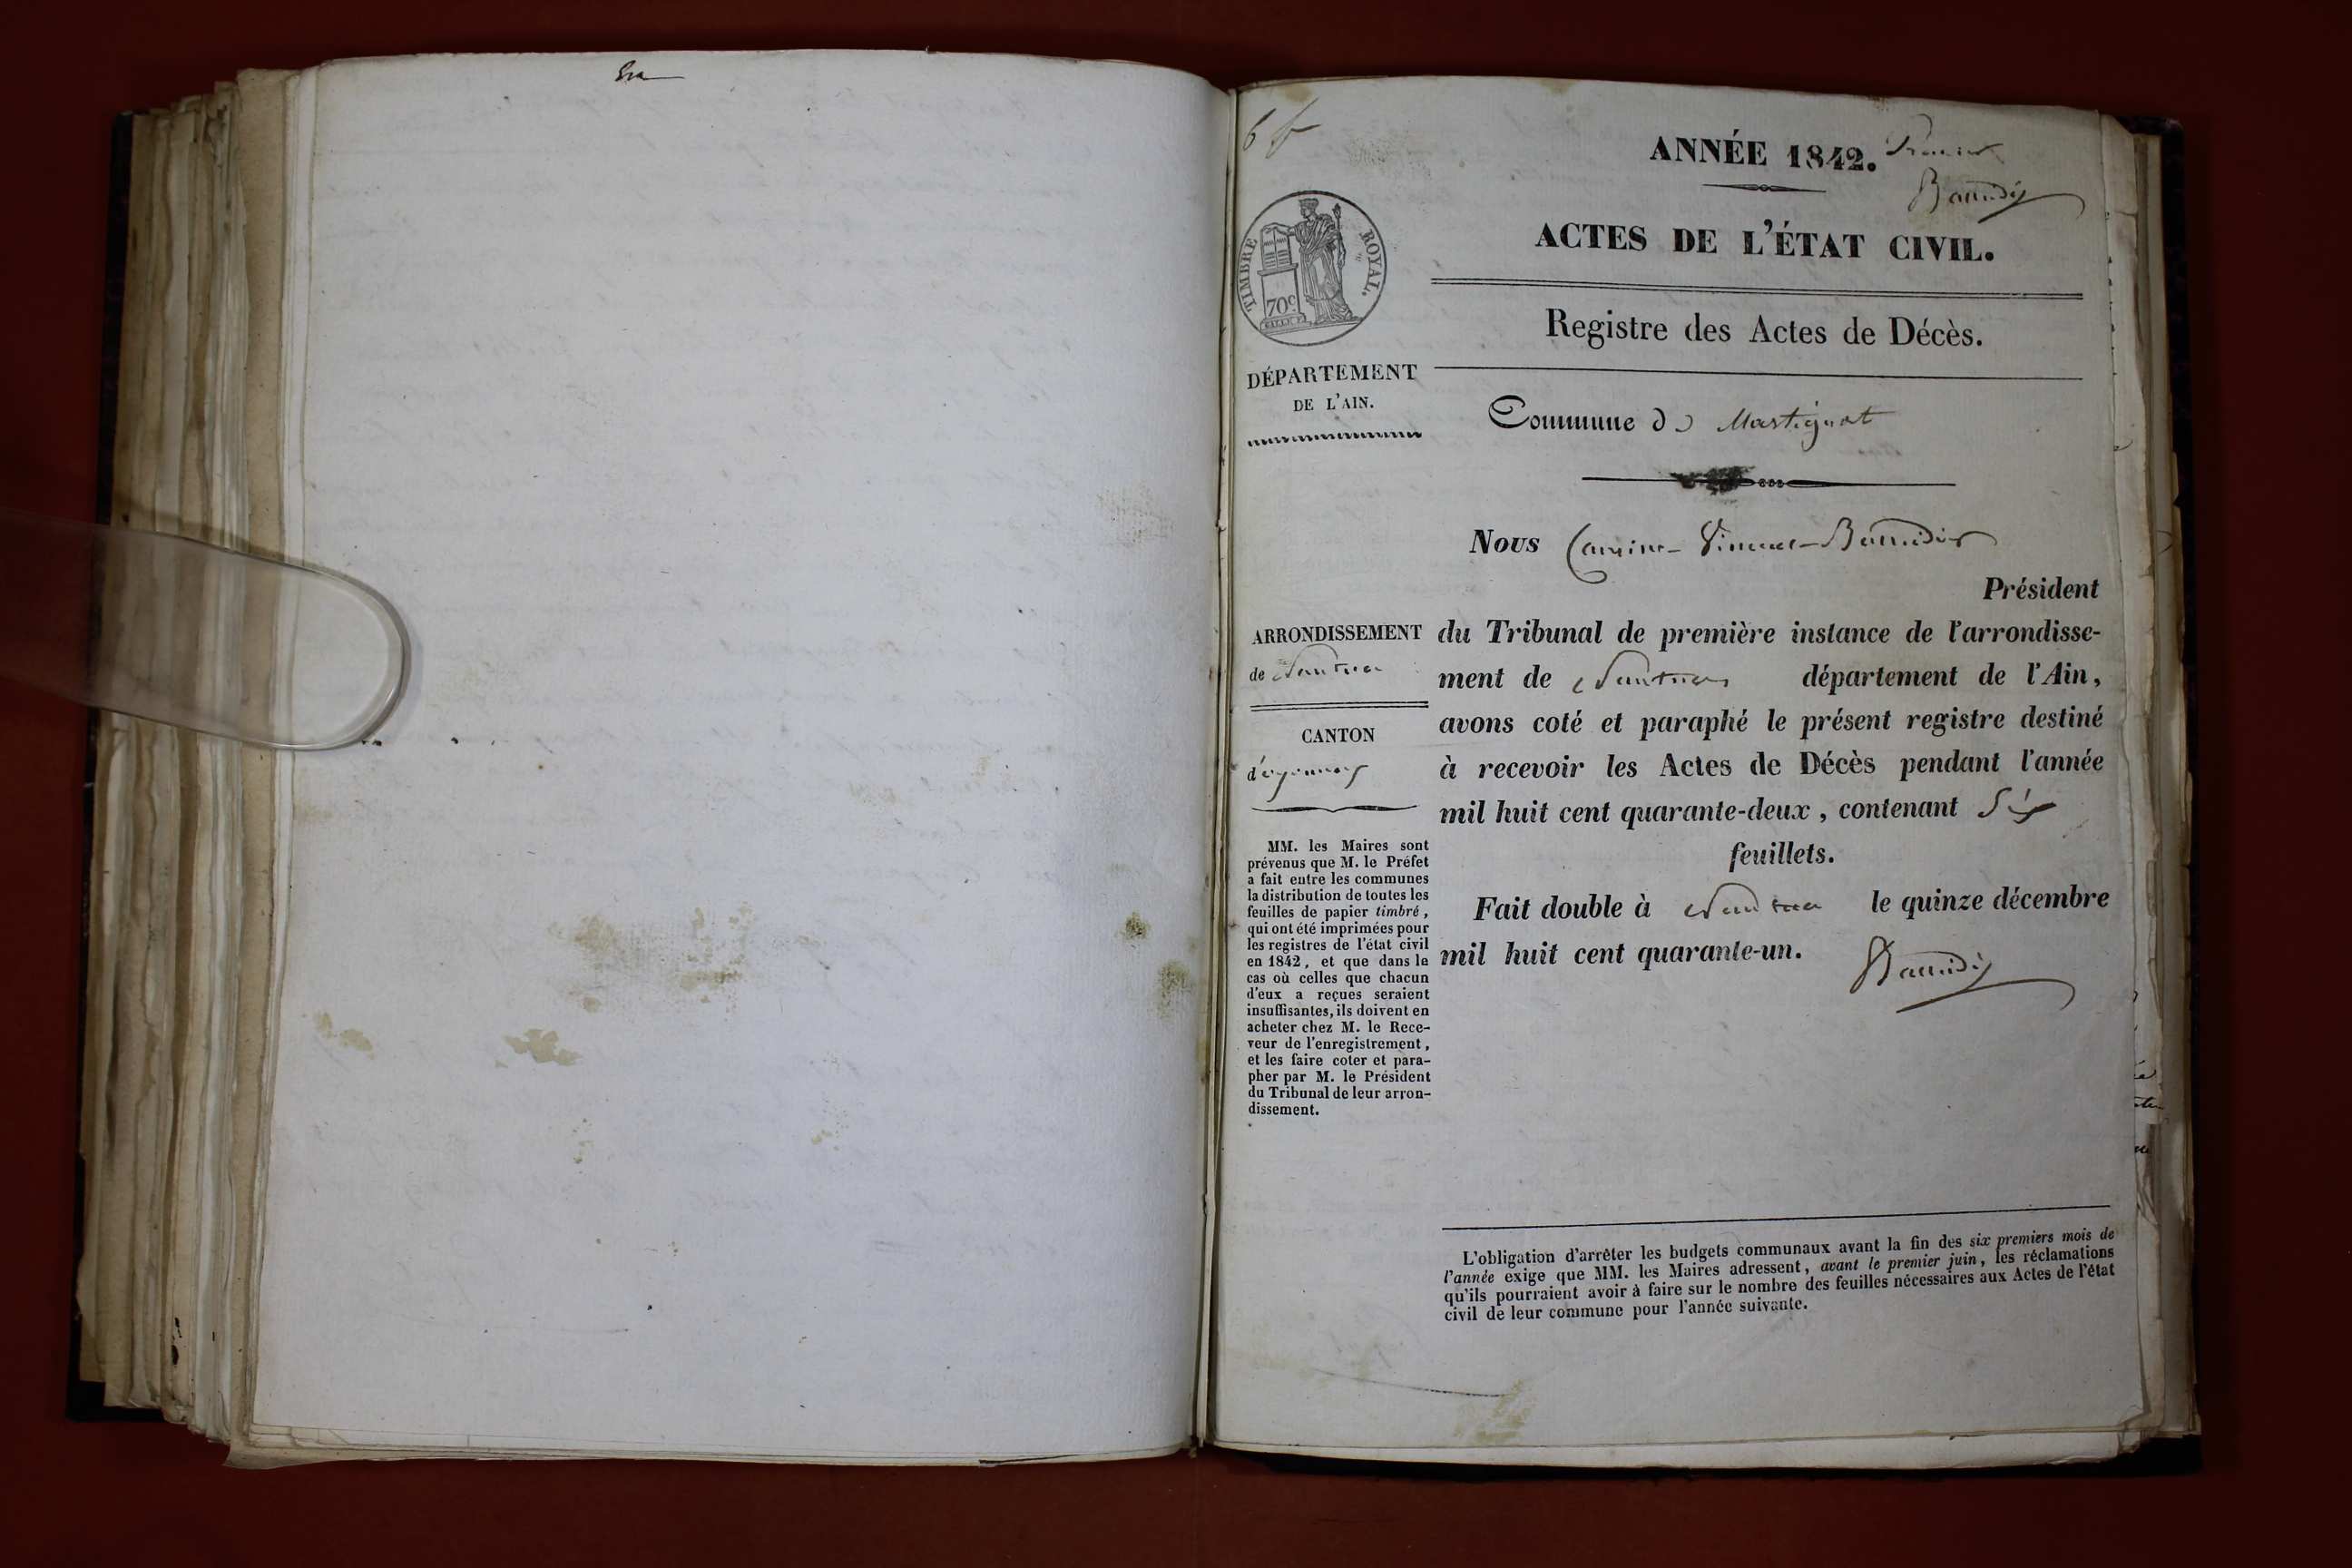 6 f
ANNÉE 1842. Premier
Baudin
ACTES DE L'ÉTAT CIVIL.
TIMBRE ROYAL.
70c
Registre des Actes de Décès.
DÉPARTEMENT
DE L'AIN.
Commune de Martignat
Nous Vincent
Président
ARRONDISSEMENT
de Nantua
CANTON
d'oyonnax
MM. les Maires sont
prévenus que M. le Préfet
a fait entre les communes
la distribution de toutes les
feuilles de papier timbré,
qui ont été imprimées pour
les registres de l'état civil
en 1842, et que dans le
cas où celles que chacun
d'eux a reçues seraient
insuffisantes, ils doivent en
acheter chez M. le Rece-
veur de l'enregistrement,
et les faire coter et para-
pher par M. le Président
du Tribunal de leur arron-
dissement.
du Tribunal de première instance de l'arrondisse-
ment de Nantua département de l'Ain,
avons coté et paraphé le présent registre destiné
à recevoir les Actes de Décès pendant l'année
mil huit cent quarante-deux, contenant Six
feuillets.
Fait double à Nantua le quinze décembre
mil huit cent quarante-un.
L'obligation d'arrêter les budgets communaux avant la fin des six premiers mois de
l'année exige que MM. les Maires adressent, avant le premier juin, les réclamations
qu'ils pourraient avoir à faire sur le nombre des feuilles nécessaires aux Actes de l'état
civil de leur commune pour l'année suivante.